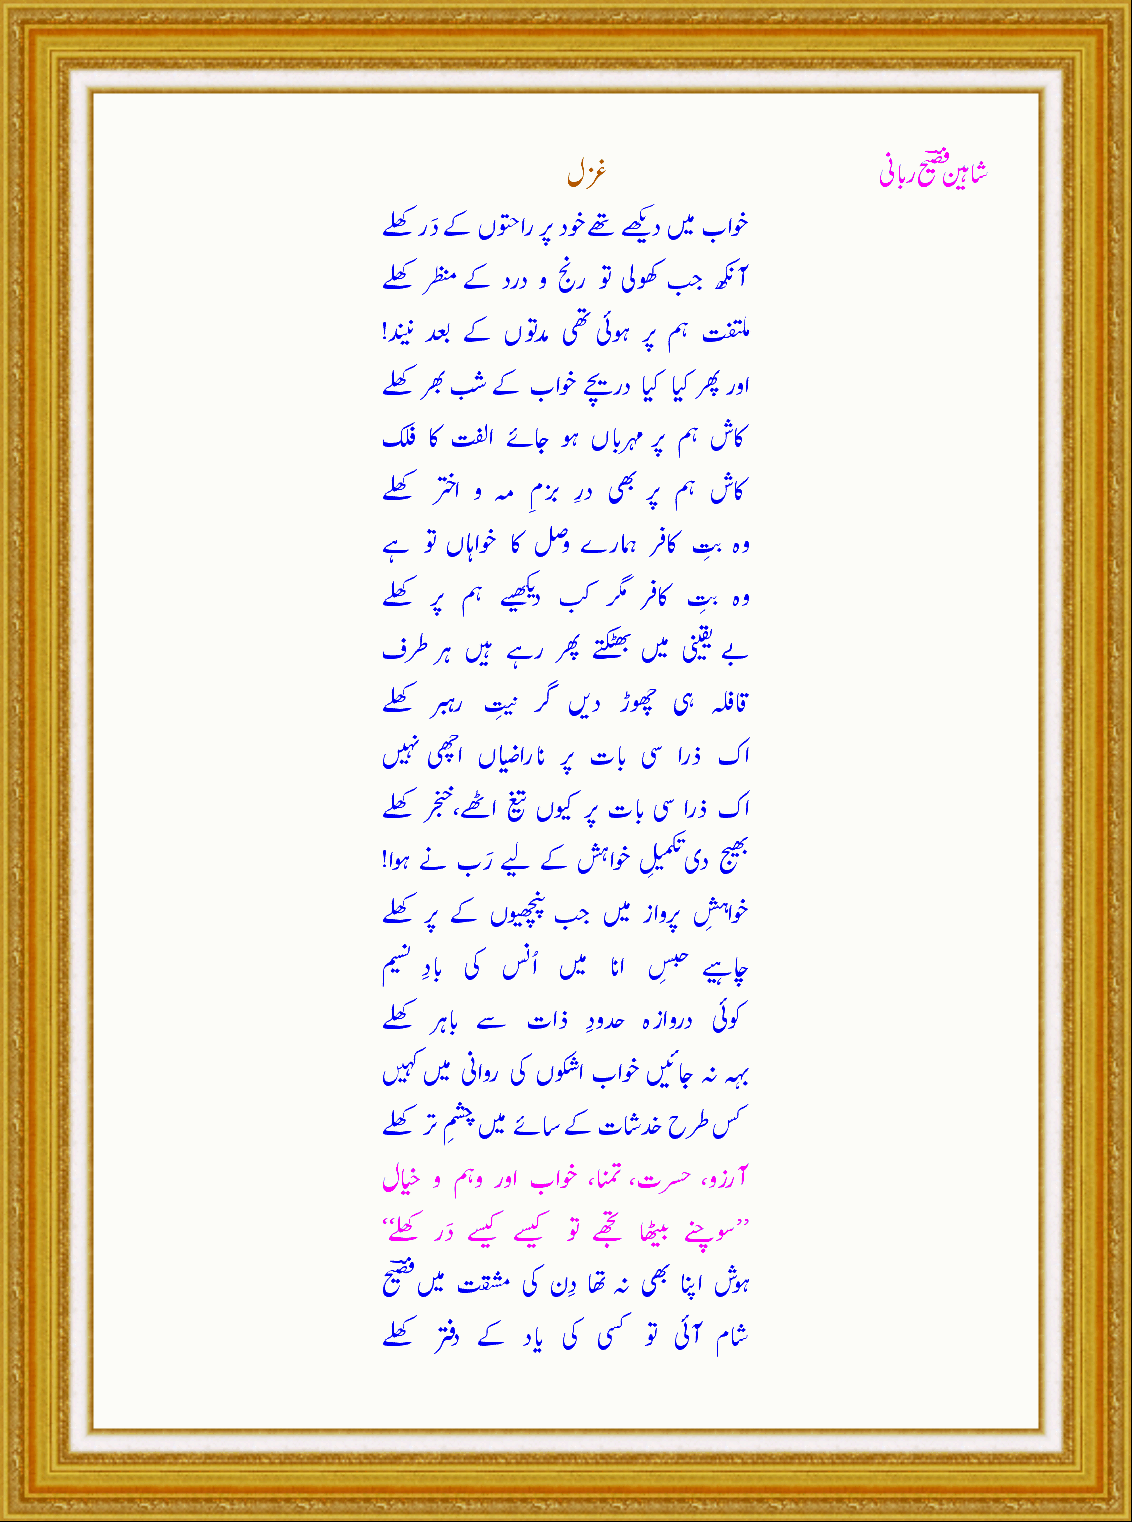 شاہین فصیحؔ ربانی
غزل
خواب میں دیکھے تھے خود پر راحتوں کے دَر کھلے
آنکھ جب کھولی تو رنج و درد کے منظر کھلے
ملتفت ہم پر ہوئی تھی مدتوں کے بعد نیند!
اور پھر کیا کیا دریچے خواب کے شب بھر کھلے
کاش ہم پر مہرباں ہو جائے الفت کا فلک
کاش ہم پر بھی درِ بزمِ مہ و اختر کھلے
وہ بتِ کافر ہمارے وصل کا خواہاں تو ہے
وہ بتِ کافر مگر کب دیکھیے ہم پر کھلے
بے یقینی میں بھٹکتے پھر رہے ہیں ہر طرف
قافلہ ہی چھوڑ دیں گر نیتِ رہبر کھلے
اک ذرا سی بات پر ناراضیاں اچھی نہیں
اک ذرا سی بات پر کیوں تیغ اٹھے، خنجر کھلے
بھیج دی تکمیلِ خواہش کے لیے رَب نے ہوا!
خواہشِ پرواز میں جب پنچھیوں کے پر کھلے
چاہیے حبسِ انا میں اُنس کی بادِ نسیم
کوئی دروازہ حدودِ ذات سے باہر کھلے
بہہ نہ جائیں خواب اشکوں کی روانی میں کہیں
کس طرح خدشات کے سائے میں چشمِ تر کھلے
آرزو، حسرت، تمنا، خواب اور وہم و خیال
’’سوچنے بیٹھا تجھے تو کیسے کیسے دَر کھلے‘‘
ہوش اپنا بھی نہ تھا دِن کی مشقت میں فصیحؔ
شام آئی تو کسی کی یاد کے دفتر کھلے